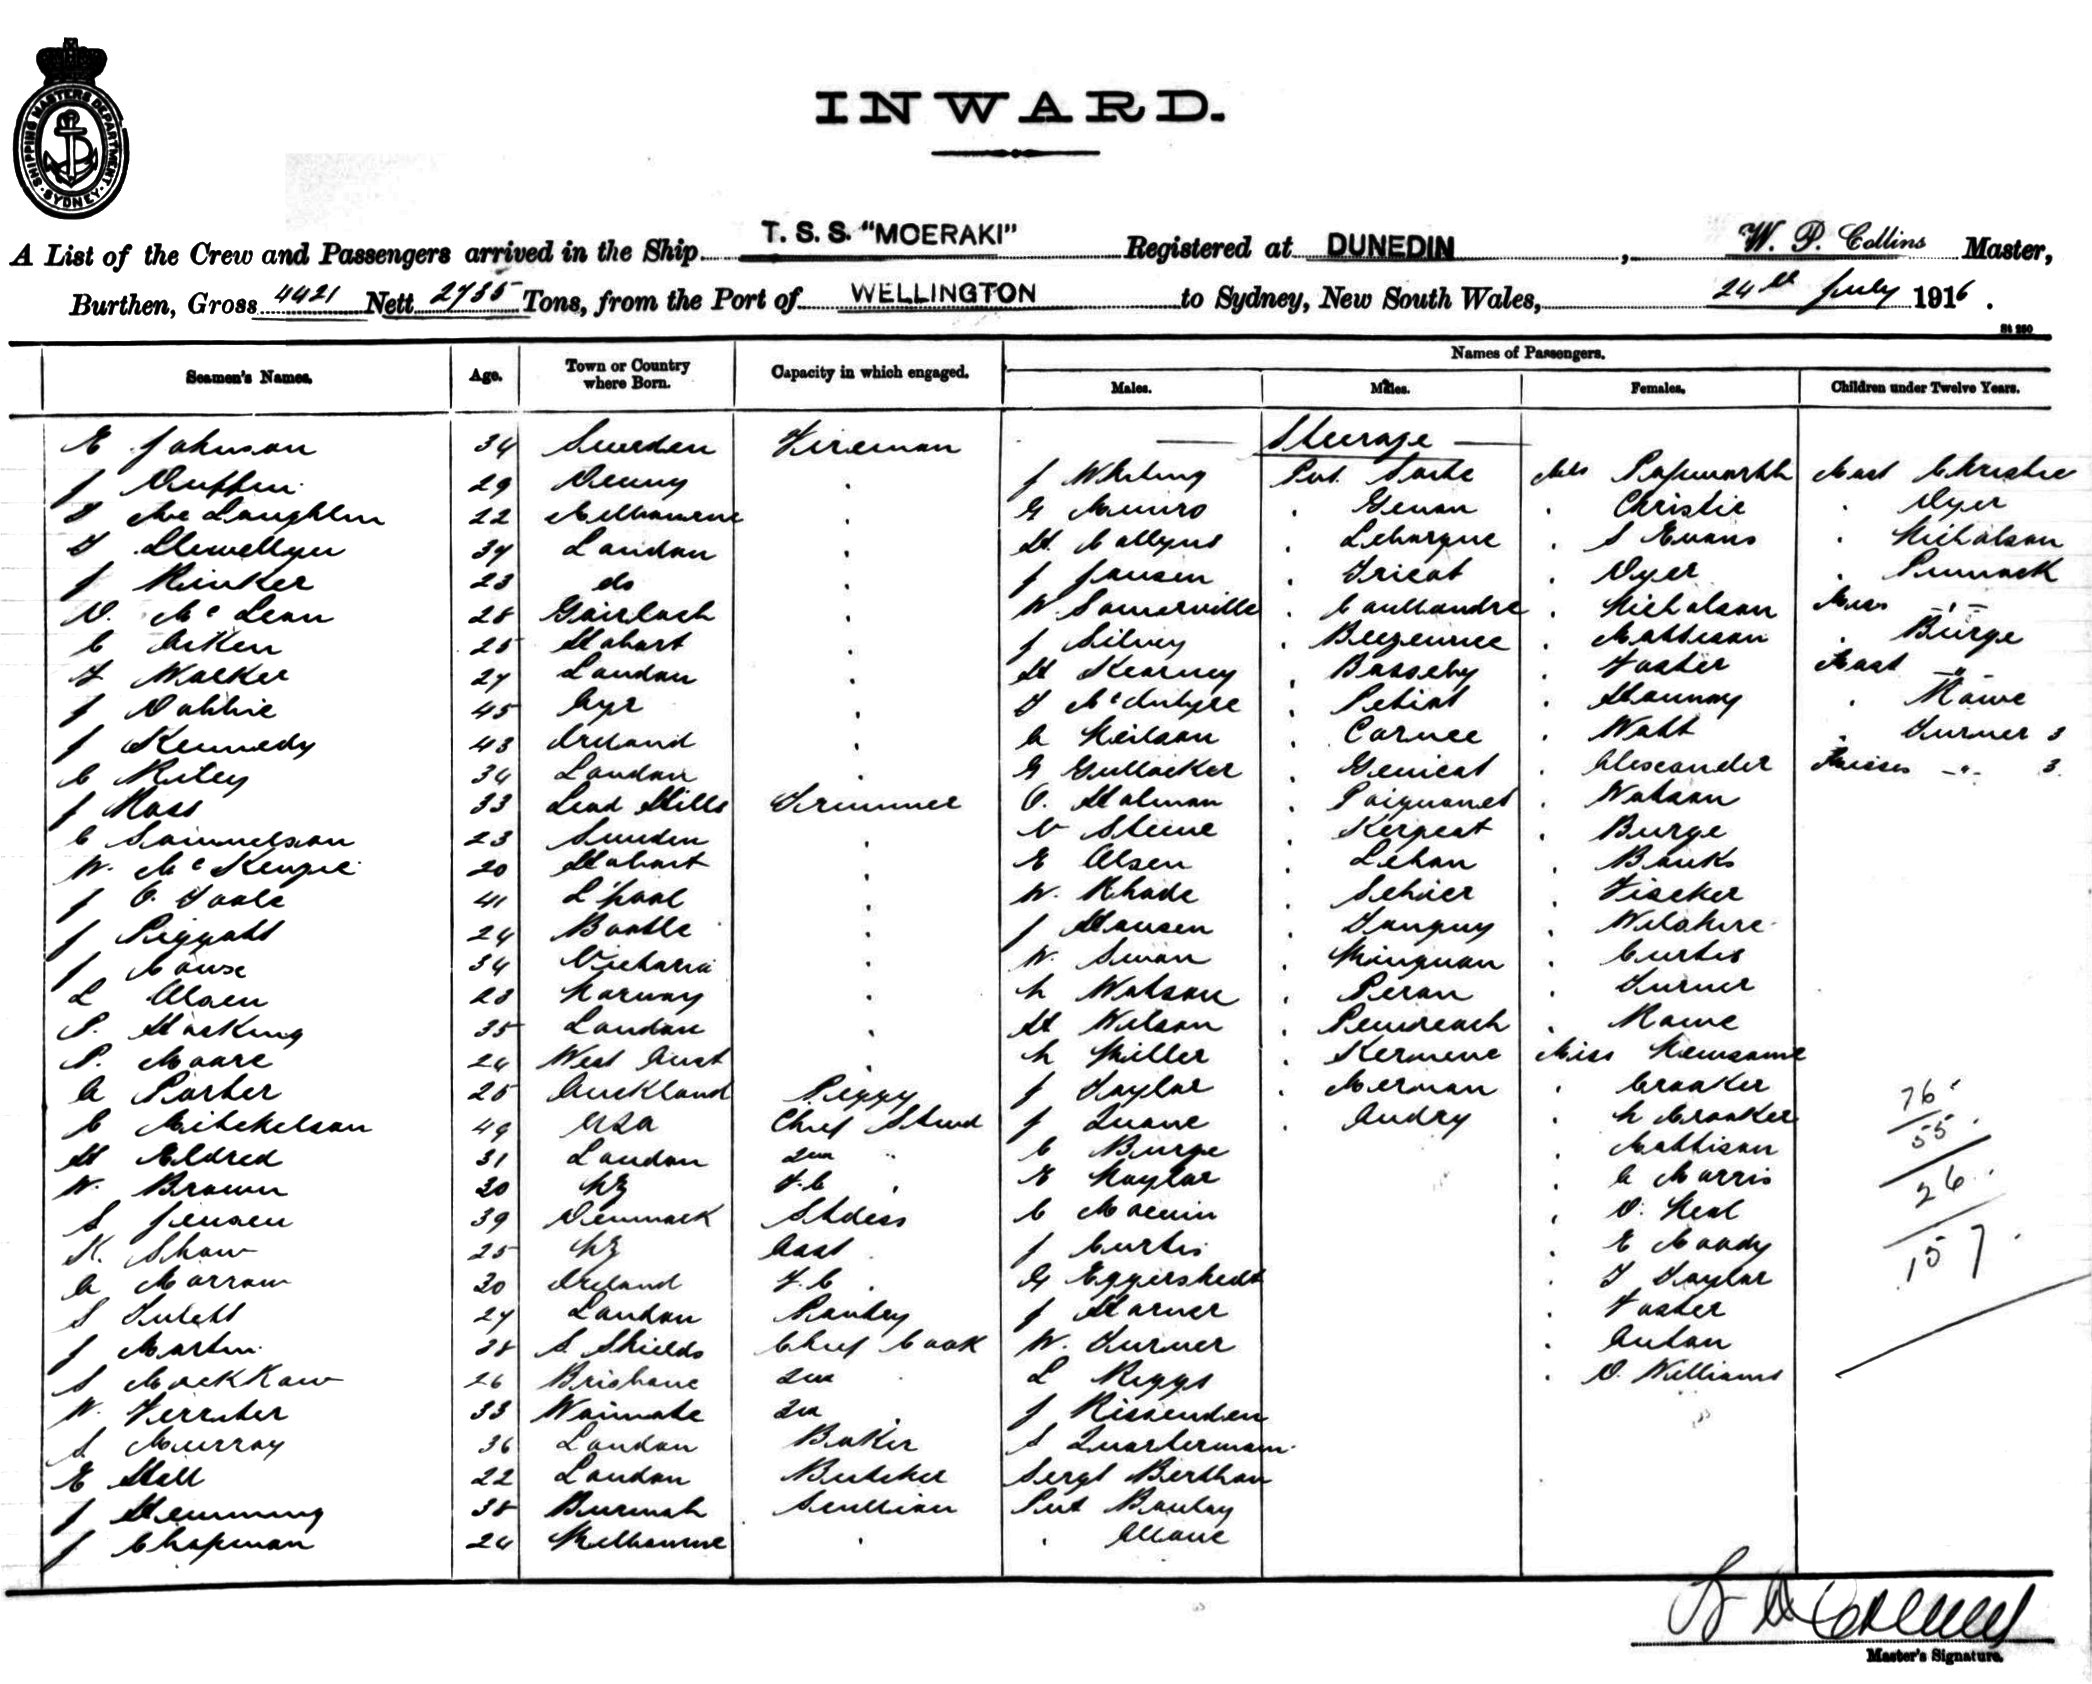 SHIPPING MASTERS DEPARTMENT · SYDNEY ·
INWARD.
A List of the Crew and Passengers arrived in the Ship T. S. S. "MOERAKI" Registered at DUNEDIN, W. P. Collins Master,
Burthen, Gross 4421 Nett 2735 Tons, from the Port of WELLINGTON to Sydney, New South Wales, 24th July 1916.
Seamen's Names. Age. Town or Country where Born. Capacity in which engaged. Names of Passengers.
Males. Males. Females. Children under Twelve Years.
E Johnson 34 Sweden Fireman — Steerage —
J Duffin 29 Denny . J Whiting Pvt. Mrs Papworth Mast Christie
McLaughlin 22 Melbourne . G Munro . . Christie . Dyer
Llewellyn 34 London . H Collyns . . S Evans . Nicholson
J Rinker 23 do . J Jansen . Tricot . Dyer . Pinnock
D. McLean 28 Gairloch . W Somerville . . Nicholson Miss - " -
C Aiken 25 Hobart . J Silvey . . Mattison . Burge
F Walker 27 London . H Kearney . . Foster Mast - " -
J Dobbie 45 Ayr . McIntyre . Petiot . Hannay . Rowe
J Kennedy 43 Ireland . A Neilson . . Watt . Turner 3
C Riley 34 London . G Gullocker . . Alexander Misses - " - 3
J Ross 33 Lead Hills Trimmer O. Holman . . Watson
C Samuelson 23 Sweden . . . Burge
W. McKenzie 20 Hobart . E Olsen . . Banks
J O. Toole 41 L'pool . W. Rhode . . Fischer
J Piggott 24 Bootle . J Hansen . Tanguy . Wilshire
J 34 Victoria . W. Swan . . Curtis
L Olsen 23 Norway . N Watson . Peron . Turner
P. Hocking 35 London . H Wilson . . Rowe
P. Moore 24 West Aust . N Miller . Miss Newsome
A Porter 25 Auckland Peggy J Taylor . Merman . Crooker
C Mitchelson 49 USA Chief Stewd J Quane . Audry . N Crooker 76
H Eldred 31 London 2nd " C Burge . Mattison 55
W. Brown 30 NZ F.C . E Naylor . A Morris 26
S Jensen 39 Denmark Stdess C . D. Neal
K. Shaw 25 NZ Asst . J Curtis . E Moody 157
A Morrow 30 Ireland F.C . G Eggerstedt . Taylor
S 27 London Pantry J Harner . Foster
J Martin 38 S. Shields Chief Cook W. Turner . Anton
S 26 Brisbane 2nd . L Riggs . D. Williams
W. Ferriter 33 Waimate 3rd . J Rissenden
S. Murray 36 London Baker S Quartermain
E Hall 22 London Butcher Sergt Berthon
J Hemming 38 Burmah Scullion Pvt Boulay
J Chapman 24 Melbourne . . Allone
Master's Signature.